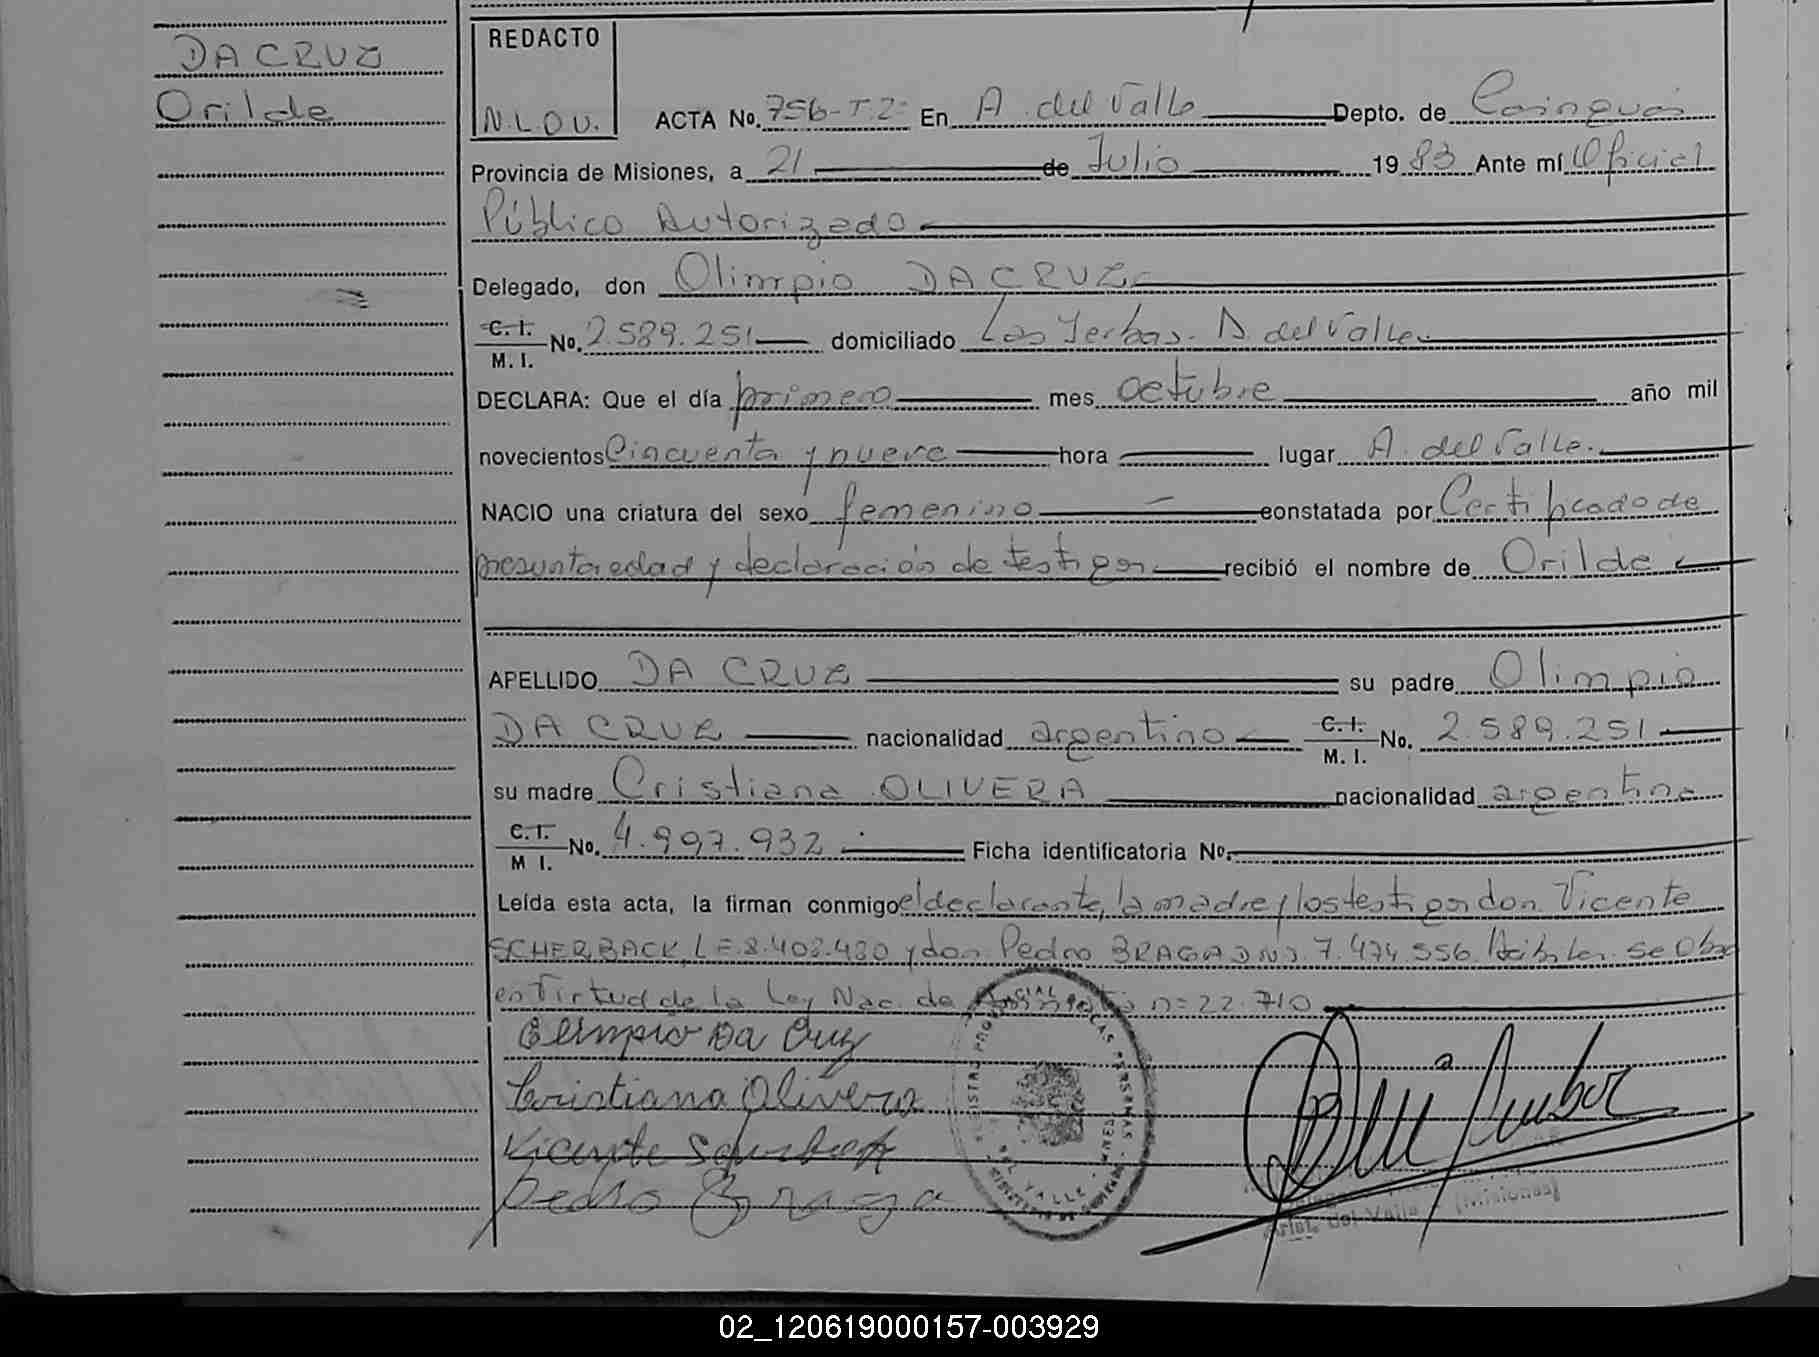 DA CRUZ
Orilde
REDACTO
N.L.O.V.
ACTA No. 756-T.2- En A. del Valle Depto. de Cainguás
Provincia de Misiones, a 21 de Julio 1983 Ante mí Oficial
Público Autorizado
Delegado, don Olimpio DA CRUZ
C. I. / M. I. No. 2.589.251 domiciliado Las Yerbas. A. del Valle.
DECLARA: Que el día primero mes octubre año mil
novecientos Cincuenta y nueve hora lugar A. del Valle.
NACIO una criatura del sexo femenino constatada por Certificado de
presunta edad y declaración de testigos recibió el nombre de Orilde
APELLIDO DA CRUZ su padre Olimpio
DA CRUZ nacionalidad argentino C. I. / M. I. No. 2.589.251
su madre Cristiana OLIVERA nacionalidad argentina
C. I. / M I. No. 4.997.932 Ficha identificatoria No.
Leída esta acta, la firman conmigo el declarante, la madre y los testigos don Vicente
SCHERBACK, L E. 8.408.480 y don Pedro BRAGA DNI. 7.474.556. Hábiles. Se Obra
en Virtud de la Ley Nac. de Amnistía n= 22.710
Olimpio Da Cruz
Cristiana Olivera
Vicente Scherback
Pedro Braga
Arist. del Valle (Misiones)
02_120619000157-003929